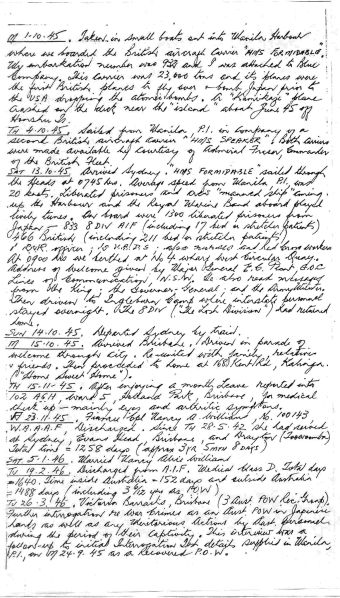 M 1.10.45. Taken in small boats out into Manila Harbour
where we boarded the British aircraft carrier "HMS FORMIDABLE".
My embarkation number was 932 and I was attached to Blue
Company. This carrier was 23,000 tons and its planes were
the first British planes to fly over & bomb Japan prior to
the USA dropping the atomic bombs. A "Kamikaze" plane
crashed on the deck near the "island" about June 45 off
Honshu Is.
TH 4.10.45. Sailed from Manila, P.I. in company of a
second British aircraft carrier "HMS SPEAKER". Both carriers
were made available by courtesy of Admiral Fraser Commander
of the British Fleet.
SAT 13.10.45 Arrived Sydney. "HMS FORMIDABLE" sailed through
the Heads at 0745 hrs. Average speed from Manila P.I. was
20 knots. Liberated prisoners and crew "manned ship" coming
up the Harbour and the Royal Marine Band aboard played
lively tunes. On board were 1300 liberated prisoners from
Japan - 833 8 DIV A.I.F (including 17 bed in stretcher patients)
466 British (including 211 bed in stretcher patients)
1 officer also nurses and Red Cross workers
At 0900 hrs we berthed at No 4 wharf west Circular Quay.
Address of welcome given by Major General E.C. Plant G.O.C
Lines of Communication, N.S.W. He also read messages
from the King, the Governor-General, and the Army Minister.
Then driven to Ingleburn Camp where interstate personnel
stayed overnight. The 8 DIV (The Lost Division) had returned
home.
SUN 14.10.45. Departed Sydney by train.
M 15.10.45. Arrived Brisbane. Driven in parade of
welcome through city. Re-united with family, relatives
& friends. Then proceeded to home at 168 Kent Rd, Kalinga.
(Home Sweet Home).
TH 15-11-45. After enjoying a month's leave reported into
102 AGH, ward 5, Holland Park, Brisbane, for medical
check up - mainly eyes and arthritic symptoms.
23-11-45. Fiancee Nancy A. Williams No. 100143
W.A.A.A.F., Discharged. Since TH 28.5.42 she had served
at Sydney, Evans Head, Brisbane and Drayton (Toowoomba)
Total time = 1258 days (approx 3 yrs 5 mths 8 days)
SAT. 5.1.46. Married Nancy Alvie Williams
TU 19.2.46. Discharged from A.I.F. Medical Class D. Total days
= 1640. Time inside Australia = 152 days and outside Australia
= 1488 days (including 3½ yrs as POW)
TU 26.3.46. Victoria Barracks, Brisbane (3 Aust POW Rec. Group).
Further interrogation re War Crimes as an Aust POW in Japanese
hands as well as any Meritorious Actions by Aust personnel
during the period of their captivity. This interview was a
follow-up to initial Interrogation and details supplied in Manila,
P.I., on M 24.9.45 as a Recovered P.O.W.